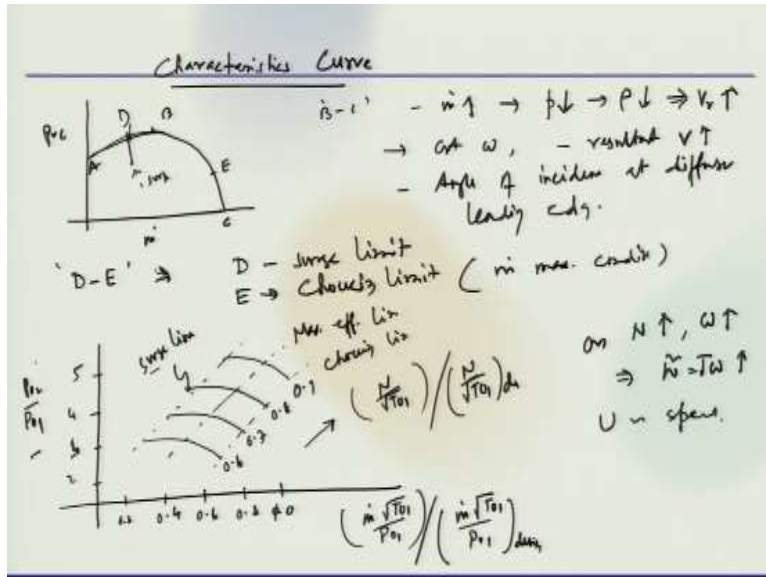 Characteristics Curve
Prc
D
B
A
surge
E
C
ṁ
'B-C' - ṁ↑ → p↓ → ρ↓ ⇒ Vr↑
→ at ω, - resultant V↑
- Angle of incidence at diffuser
leading edge.
'D-E' ⇒ D - surge limit
E → Choking limit ( ṁ max. condition )
surge line
Max. eff. line
choking line
P01
5
4
3
2
0.6
0.7
0.8
0.9
0.4
0.6
0.8
(N/√T01)/(N/√T01)des
(ṁ√T01/P01)/(ṁ√T01/P01)design
on N↑, ω↑
⇒ = Tω↑
U ~ speed.